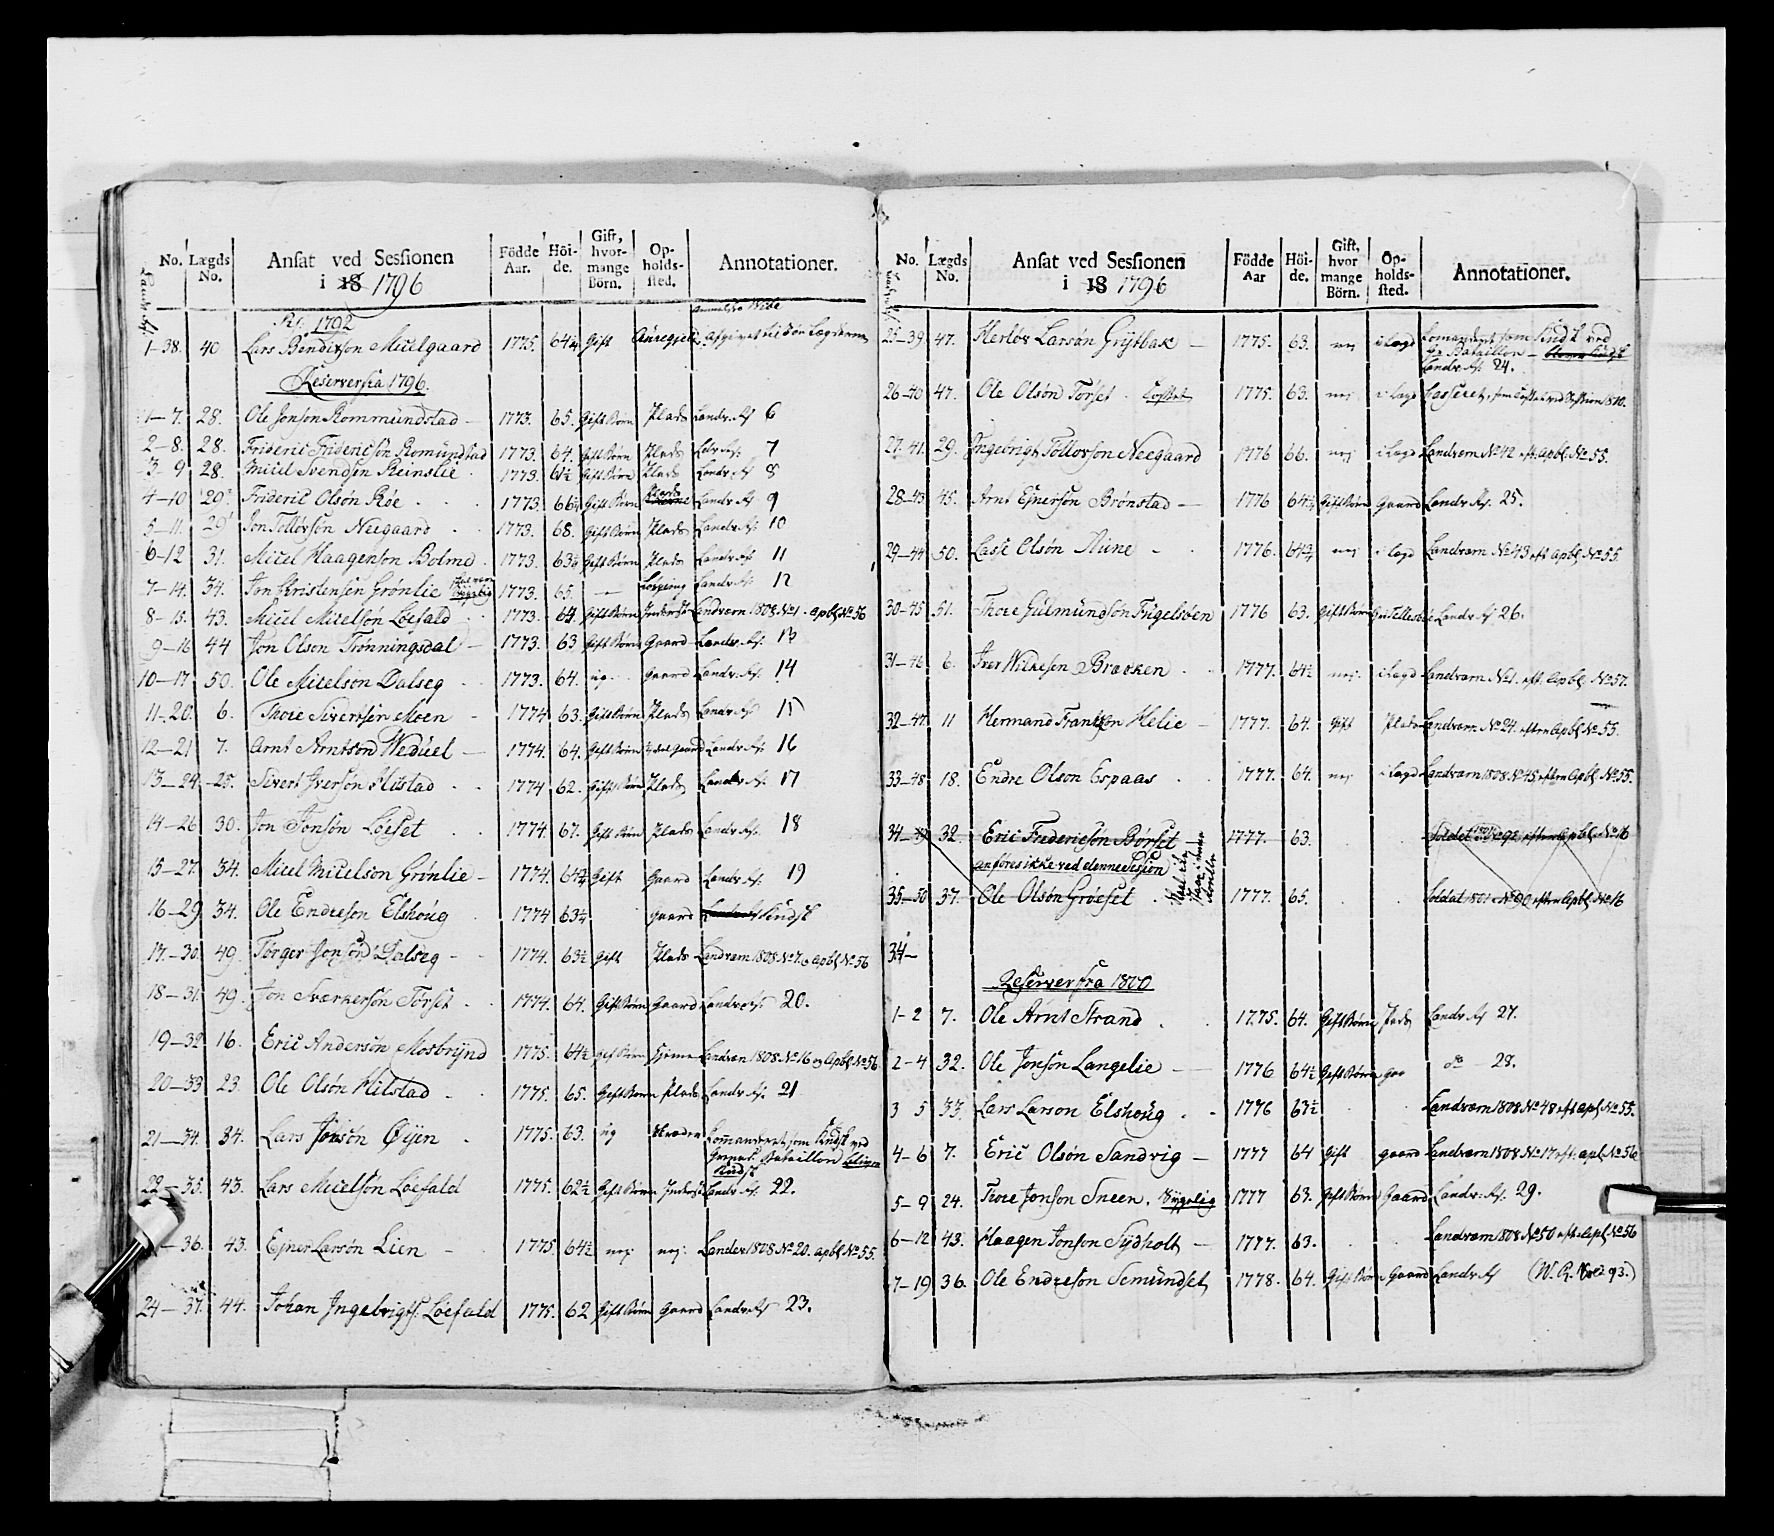 No. Lægds No. Ansat ved Sessionen i 18 1796 Födde Aar. Höi-de. Gift, hvor-mange Börn. Op-holds-sted. Annotationer.
1792
1-38. 40 Lars Bendixson Micelgaard 1775. 64¾ Gift
Reserver fra 1796.
1-7. 28. Ole Jonson Rommündstad 1773. 65. Gift Børn Plads Landv. No 6
2-8. 28. Frideric Fridericsön Romündstad 1773. 64. Gift Børn Plads 7
3 9 28. Micel Svendsen Reinslie 1773. 64½ Gift Børn Plads Landv No 8
4-10 29. Frideric Olsön Röe 1773. 66¼ Gift Børn Plads Landv No 9
5-11. 29 Jon Tollövsön Neegaard 1773. 68. Gift Børn Plads Landv. No: 10
6-12 31. Micel Haagenson Bolmd 1773. 63½ Gift Børn Plads Landv No 11
7-14. 34. Jon Christensen Grönlie 1773. 65. — Landv. No: 12
8-15. 43. Micel Micelsön Löefald 1773. 64. Gift Børn Inderst Landvern 1808 No 1. Apbl No 56
9-16 44 Jon Olsen Trönningsdal 1773. 63 Gift Børn Gaard Landv. No: 13
10-17 50. Ole Micelson Dalseg 1773. 64. ug. Gaard Landv. No: 14
11-20. 6. Thore Sivertsen Moen 1774 63. Gift Børn Plads Landv No 15
12-21 7. Arnt Arntson Wedüel 1774. 64. Gift Børn Gaard Landv No: 16
13-24. 25. Sivert Iversön Hilstad 1774 62. Gift Børn Plads Landv No: 17
14-26 30. Jon Jonsön Löeset 1774. 67. Gift Børn Plads Landv No: 18
15-27. 34. Micel Micelson Grönlie 1774. 64¾ Gift Gaard Landv No: 19
16-29 34. Ole Endreson Elshoug 1774 63¼ Gaard Landv No Kudsk
17-30. 49. Törger Jonsön Dalseg 1774. 63½ Gift Plads Landvern 1808 No 7. Apbl No 56
18-31. 49. Jon Sverkersön Törset 1774. 64. Gift Børn Gaard Landv No: 20.
19-32 16. Eric Andersön Mosbrÿnd 1775. 64½ Gift Børn Hjeme Landvern 1808 No 16 Apbl No 56
20-33 23. Ole Olsön Hilstad 1775. 65. Gift Børn Plads Landv No. 21
21-34 34. Lars Jönsön Öÿen 1775. 63. ug Comanderet som Kudsk ved
Bataillon bliver
Kudsk
22-35. 43. Lars Micelsön Löefald 1775. 62½ Gift Børn Inderst Landv No: 22.
-36. 43. Ejner Larsön Lien 1775 64½ nej. nej. Landv 1808 No 20. apbl No 55.
24-37. 44. Johan Ingebrigts. Löefald 1775. 62 Gift Børn Gaard Landv No 23.
No. Lægds No. Ansat ved Sessionen i 18 1796 Födde Aar Höi-de. Gift, hvor mange Börn. Op-holds-sted. Annotationer.
25-39 47. Herlöv Larsön Grÿtbak 1775. 63. nej i Lægd Comanderet som Kudsk ved
Bataillon
Landv. No: 24.
26-40 47. Ole Olsön Törset. Costet 1775. 63. nej i Lægd Casseret, som Costet ved Session 1810.
27-41. 29. Ingebrigt Tollovson Neegaard 1776 66. nej i Lægd Landvern No 42 eft. Apbl. No 55.
28-43 45. Arnt Ejnersön Brönstad 1776 64½ Gift Børn Gaard Landv No: 25.
29-44 50. Lasse Olsön Aüne 1776. 64¾ nej i Lægd Landvern No 43 eft apbl No 55.
30-45 51. Thore Gulmündsön Fügelsöen 1776 63. Gift Børn Landv No 26.
31-46 6. Iver Wilkesen Bracken 1777. 64½ nej. i Lægd Landvern No 1. eft. Apbl No 57.
32-47 11 Hermand Frantzon Helie 1777. 64. Gift Plads Landvern No 24. efter Apbl No 55.
33-48 18. Endre Olson Espaas 1777. 64. nej i Lægd Landvern 1808 No 45 efter Apbl No 55.
34-49 32. Eric Fredericsön Börset 1777. 63. Soldat No 92 efter Apbl No 16
anföres ikke ved denne Session
35-50 37. Ole Olsön Gröeset 1777. 65. Soldat 1801 No 90 efter Apbl No 16
34-
Reserver fra 1800
1-2 7. Ole Arnt Strand 1775. 64. Gift Børn Plads Landv No 27.
2-4 32. Ole Jonsön Langelie 1776 64½ Gift Børn do 28.
3 5 33. Lars Larson Elshoug 1776 63½ Landvern 1808 No 48 eft apl No 55.
4-6 7. Eric Olsön Sandvig 1777 64 Gift gaard Landvern 1808 No 17 eft. apl No 56
5-9 24. Thore Jonson Sneen. Sÿgelig 1777 63. Gift Børn Gaard Landv: No: 29.
6-12 43. Haagen Jonson Sÿdholt 1777. 63. Landvern 1808 No 50 eft Apl No 56
7-19 36. Ole Endreson Semündset 1778. 64. Gift Børn Gaard Landv No